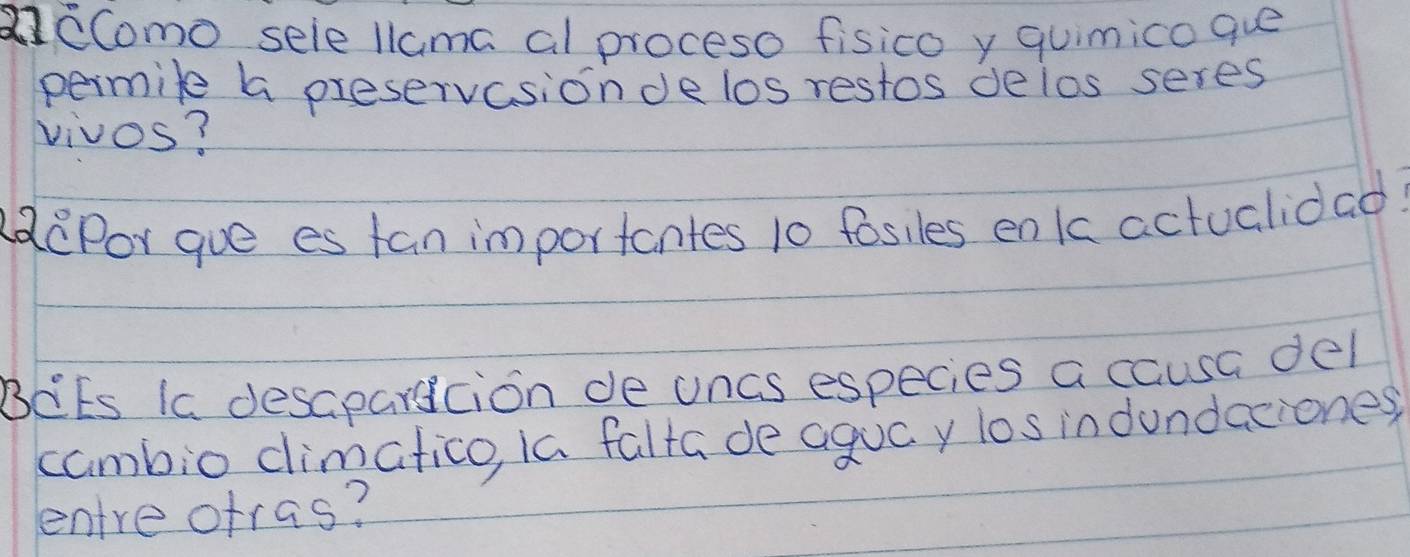 21¿Como sele llama al proceso fisico y quimico que
permite la preservasión de los restos delos seres
vivos?
22¿Por que es tan importantes lo fosiles enla actualidad?
23¿Es la desapardción de unas especies a causa del
cambio climatico, la falta de agua y los indundaciones,
entre otras?